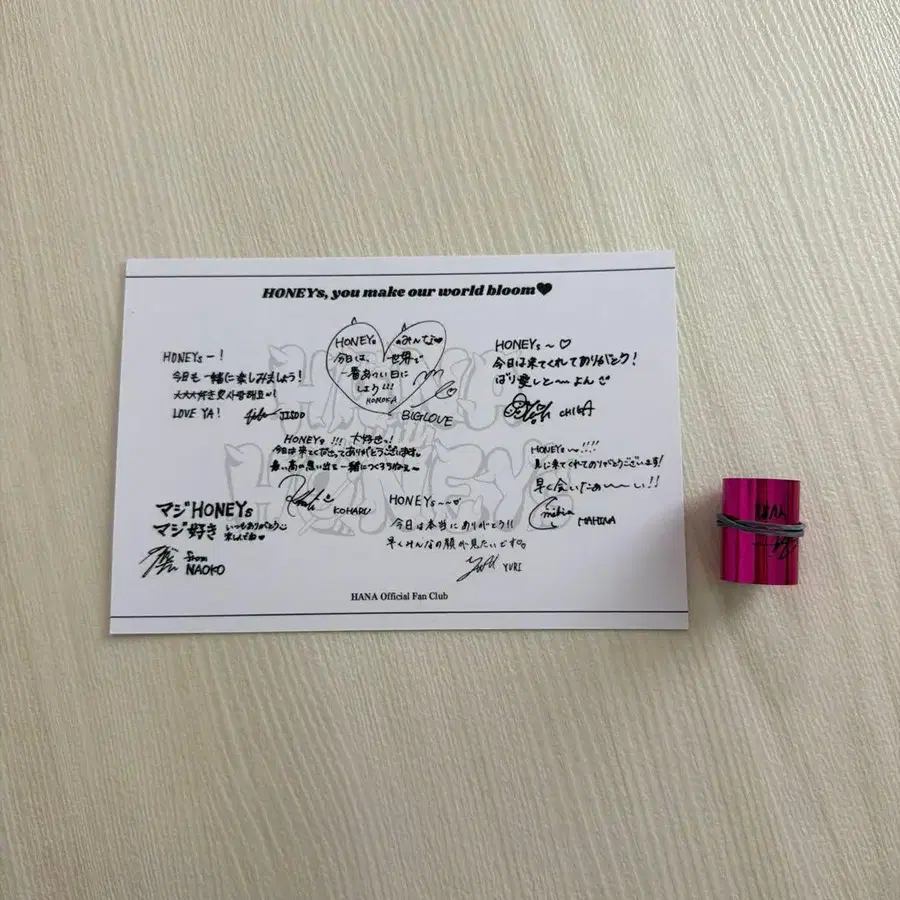 HONEYs, you make our world bloom♥
HONEYs ー!
今日も一緒に楽しみましょう!
LOVE YA!
JISOO
HONEYs のみんな♥
今日は、世界で
一番あつい日に
しよう!!!
MOMOKA
BIGLOVE
HONEYs ~ ♡
今日は来てくれてありがとう!
ばり愛しと〜〜よん
CHIKA
HONEYs !!! 大好きっ!
今日は来てくださってありがとうございます。
最っ高の思い出を一緒につくろうねぇ〜
KOHARU
HONEYs~!!!!
見に来てくれてありがとうございます!
早く会いたぁ〜〜い!!
MAHINA
マジHONEYs
マジ好き いつもありがとう
楽しんでね
from
NAOKO
HONEYs~~
今日は本当にありがとう!!
早くみんなの顔が見たいです
YURI
HANA
HONEYs
HANA Official Fan Club